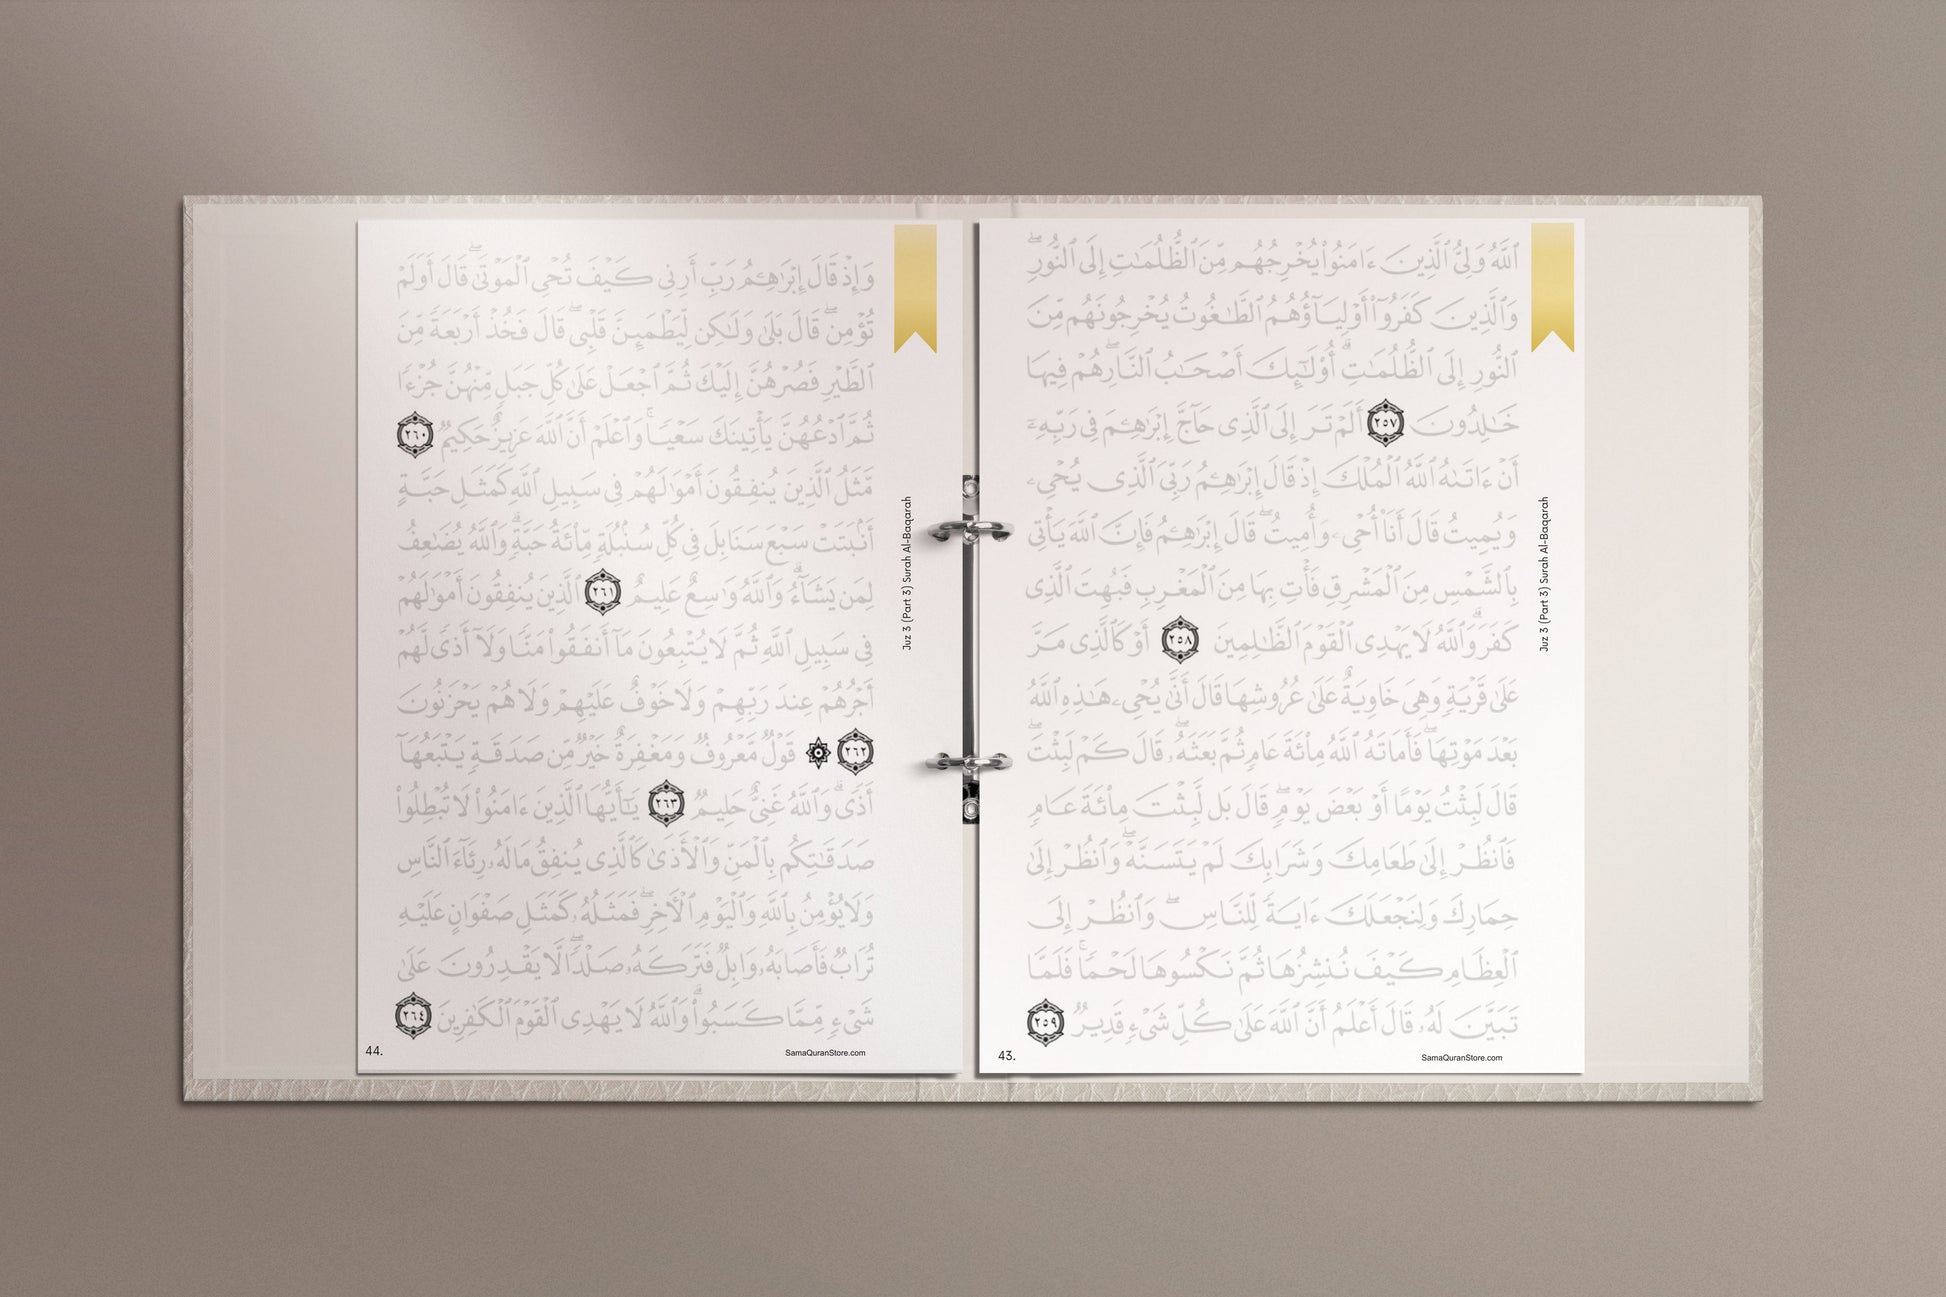 ٱللَّهُ وَلِىُّ ٱلَّذِينَ ءَامَنُوا۟ يُخْرِجُهُم مِّنَ ٱلظُّلُمَـٰتِ إِلَى ٱلنُّورِ ۖ
وَٱلَّذِينَ كَفَرُوٓا۟ أَوْلِيَآؤُهُمُ ٱلطَّـٰغُوتُ يُخْرِجُونَهُم مِّنَ
ٱلنُّورِ إِلَى ٱلظُّلُمَـٰتِ ۗ أُو۟لَـٰٓئِكَ أَصْحَـٰبُ ٱلنَّارِ ۖ هُمْ فِيهَا
خَـٰلِدُونَ ٢٥٧ أَلَمْ تَرَ إِلَى ٱلَّذِى حَآجَّ إِبْرَٰهِـۧمَ فِى رَبِّهِۦٓ
أَنْ ءَاتَىٰهُ ٱللَّهُ ٱلْمُلْكَ إِذْ قَالَ إِبْرَٰهِـۧمُ رَبِّىَ ٱلَّذِى يُحْىِۦ
وَيُمِيتُ قَالَ أَنَا۠ أُحْىِۦ وَأُمِيتُ ۖ قَالَ إِبْرَٰهِـۧمُ فَإِنَّ ٱللَّهَ يَأْتِى
بِٱلشَّمْسِ مِنَ ٱلْمَشْرِقِ فَأْتِ بِهَا مِنَ ٱلْمَغْرِبِ فَبُهِتَ ٱلَّذِى
كَفَرَ ۗ وَٱللَّهُ لَا يَهْدِى ٱلْقَوْمَ ٱلظَّـٰلِمِينَ ٢٥٨ أَوْ كَٱلَّذِى مَرَّ
عَلَىٰ قَرْيَةٍ وَهِىَ خَاوِيَةٌ عَلَىٰ عُرُوشِهَا قَالَ أَنَّىٰ يُحْىِۦ هَـٰذِهِ ٱللَّهُ
بَعْدَ مَوْتِهَا ۖ فَأَمَاتَهُ ٱللَّهُ مِا۟ئَةَ عَامٍ ثُمَّ بَعَثَهُۥ ۖ قَالَ كَمْ لَبِثْتَ ۖ
قَالَ لَبِثْتُ يَوْمًا أَوْ بَعْضَ يَوْمٍ ۖ قَالَ بَل لَّبِثْتَ مِا۟ئَةَ عَامٍ
فَٱنظُرْ إِلَىٰ طَعَامِكَ وَشَرَابِكَ لَمْ يَتَسَنَّهْ ۖ وَٱنظُرْ إِلَىٰ
حِمَارِكَ وَلِنَجْعَلَكَ ءَايَةً لِّلنَّاسِ ۖ وَٱنظُرْ إِلَى
ٱلْعِظَامِ كَيْفَ نُنشِزُهَا ثُمَّ نَكْسُوهَا لَحْمًا ۚ فَلَمَّا
تَبَيَّنَ لَهُۥ قَالَ أَعْلَمُ أَنَّ ٱللَّهَ عَلَىٰ كُلِّ شَىْءٍ قَدِيرٌ ٢٥٩
Juz 3 (Part 3) Surah Al-Baqarah
43.
SamaQuranStore.com
وَإِذْ قَالَ إِبْرَٰهِـۧمُ رَبِّ أَرِنِى كَيْفَ تُحْىِ ٱلْمَوْتَىٰ ۖ قَالَ أَوَلَمْ
تُؤْمِن ۖ قَالَ بَلَىٰ وَلَـٰكِن لِّيَطْمَئِنَّ قَلْبِى ۖ قَالَ فَخُذْ أَرْبَعَةً مِّنَ
ٱلطَّيْرِ فَصُرْهُنَّ إِلَيْكَ ثُمَّ ٱجْعَلْ عَلَىٰ كُلِّ جَبَلٍ مِّنْهُنَّ جُزْءًا
ثُمَّ ٱدْعُهُنَّ يَأْتِينَكَ سَعْيًا ۚ وَٱعْلَمْ أَنَّ ٱللَّهَ عَزِيزٌ حَكِيمٌ ٢٦٠
مَّثَلُ ٱلَّذِينَ يُنفِقُونَ أَمْوَٰلَهُمْ فِى سَبِيلِ ٱللَّهِ كَمَثَلِ حَبَّةٍ
أَنۢبَتَتْ سَبْعَ سَنَابِلَ فِى كُلِّ سُنۢبُلَةٍ مِّا۟ئَةُ حَبَّةٍ ۗ وَٱللَّهُ يُضَـٰعِفُ
لِمَن يَشَآءُ ۗ وَٱللَّهُ وَٰسِعٌ عَلِيمٌ ٢٦١ ٱلَّذِينَ يُنفِقُونَ أَمْوَٰلَهُمْ
فِى سَبِيلِ ٱللَّهِ ثُمَّ لَا يُتْبِعُونَ مَآ أَنفَقُوا۟ مَنًّا وَلَآ أَذًى ۙ لَّهُمْ
أَجْرُهُمْ عِندَ رَبِّهِمْ وَلَا خَوْفٌ عَلَيْهِمْ وَلَا هُمْ يَحْزَنُونَ
٢٦٢ ۞ قَوْلٌ مَّعْرُوفٌ وَمَغْفِرَةٌ خَيْرٌ مِّن صَدَقَةٍ يَتْبَعُهَآ
أَذًى ۗ وَٱللَّهُ غَنِىٌّ حَلِيمٌ ٢٦٣ يَـٰٓأَيُّهَا ٱلَّذِينَ ءَامَنُوا۟ لَا تُبْطِلُوا۟
صَدَقَـٰتِكُم بِٱلْمَنِّ وَٱلْأَذَىٰ كَٱلَّذِى يُنفِقُ مَالَهُۥ رِئَآءَ ٱلنَّاسِ
وَلَا يُؤْمِنُ بِٱللَّهِ وَٱلْيَوْمِ ٱلْـَٔاخِرِ ۖ فَمَثَلُهُۥ كَمَثَلِ صَفْوَانٍ عَلَيْهِ
تُرَابٌ فَأَصَابَهُۥ وَابِلٌ فَتَرَكَهُۥ صَلْدًا ۖ لَّا يَقْدِرُونَ عَلَىٰ
شَىْءٍ مِّمَّا كَسَبُوا۟ ۗ وَٱللَّهُ لَا يَهْدِى ٱلْقَوْمَ ٱلْكَـٰفِرِينَ ٢٦٤
Juz 3 (Part 3) Surah Al-Baqarah
44.
SamaQuranStore.com